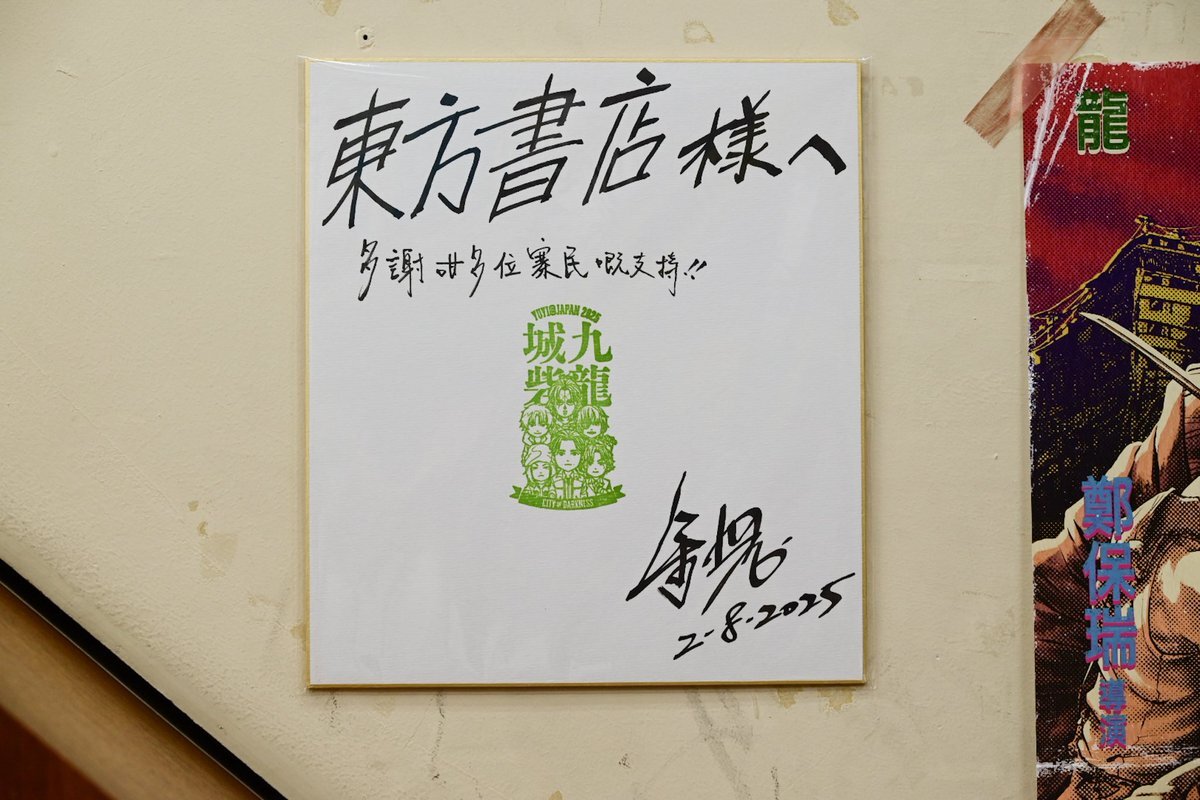 東方書店様へ
多謝咁多位寨民嘅支持!!
YUYI@JAPAN 2025
九龍
城砦
CITY OF DARKNESS
余兒
2-8-2025
龍
鄭保瑞 導演